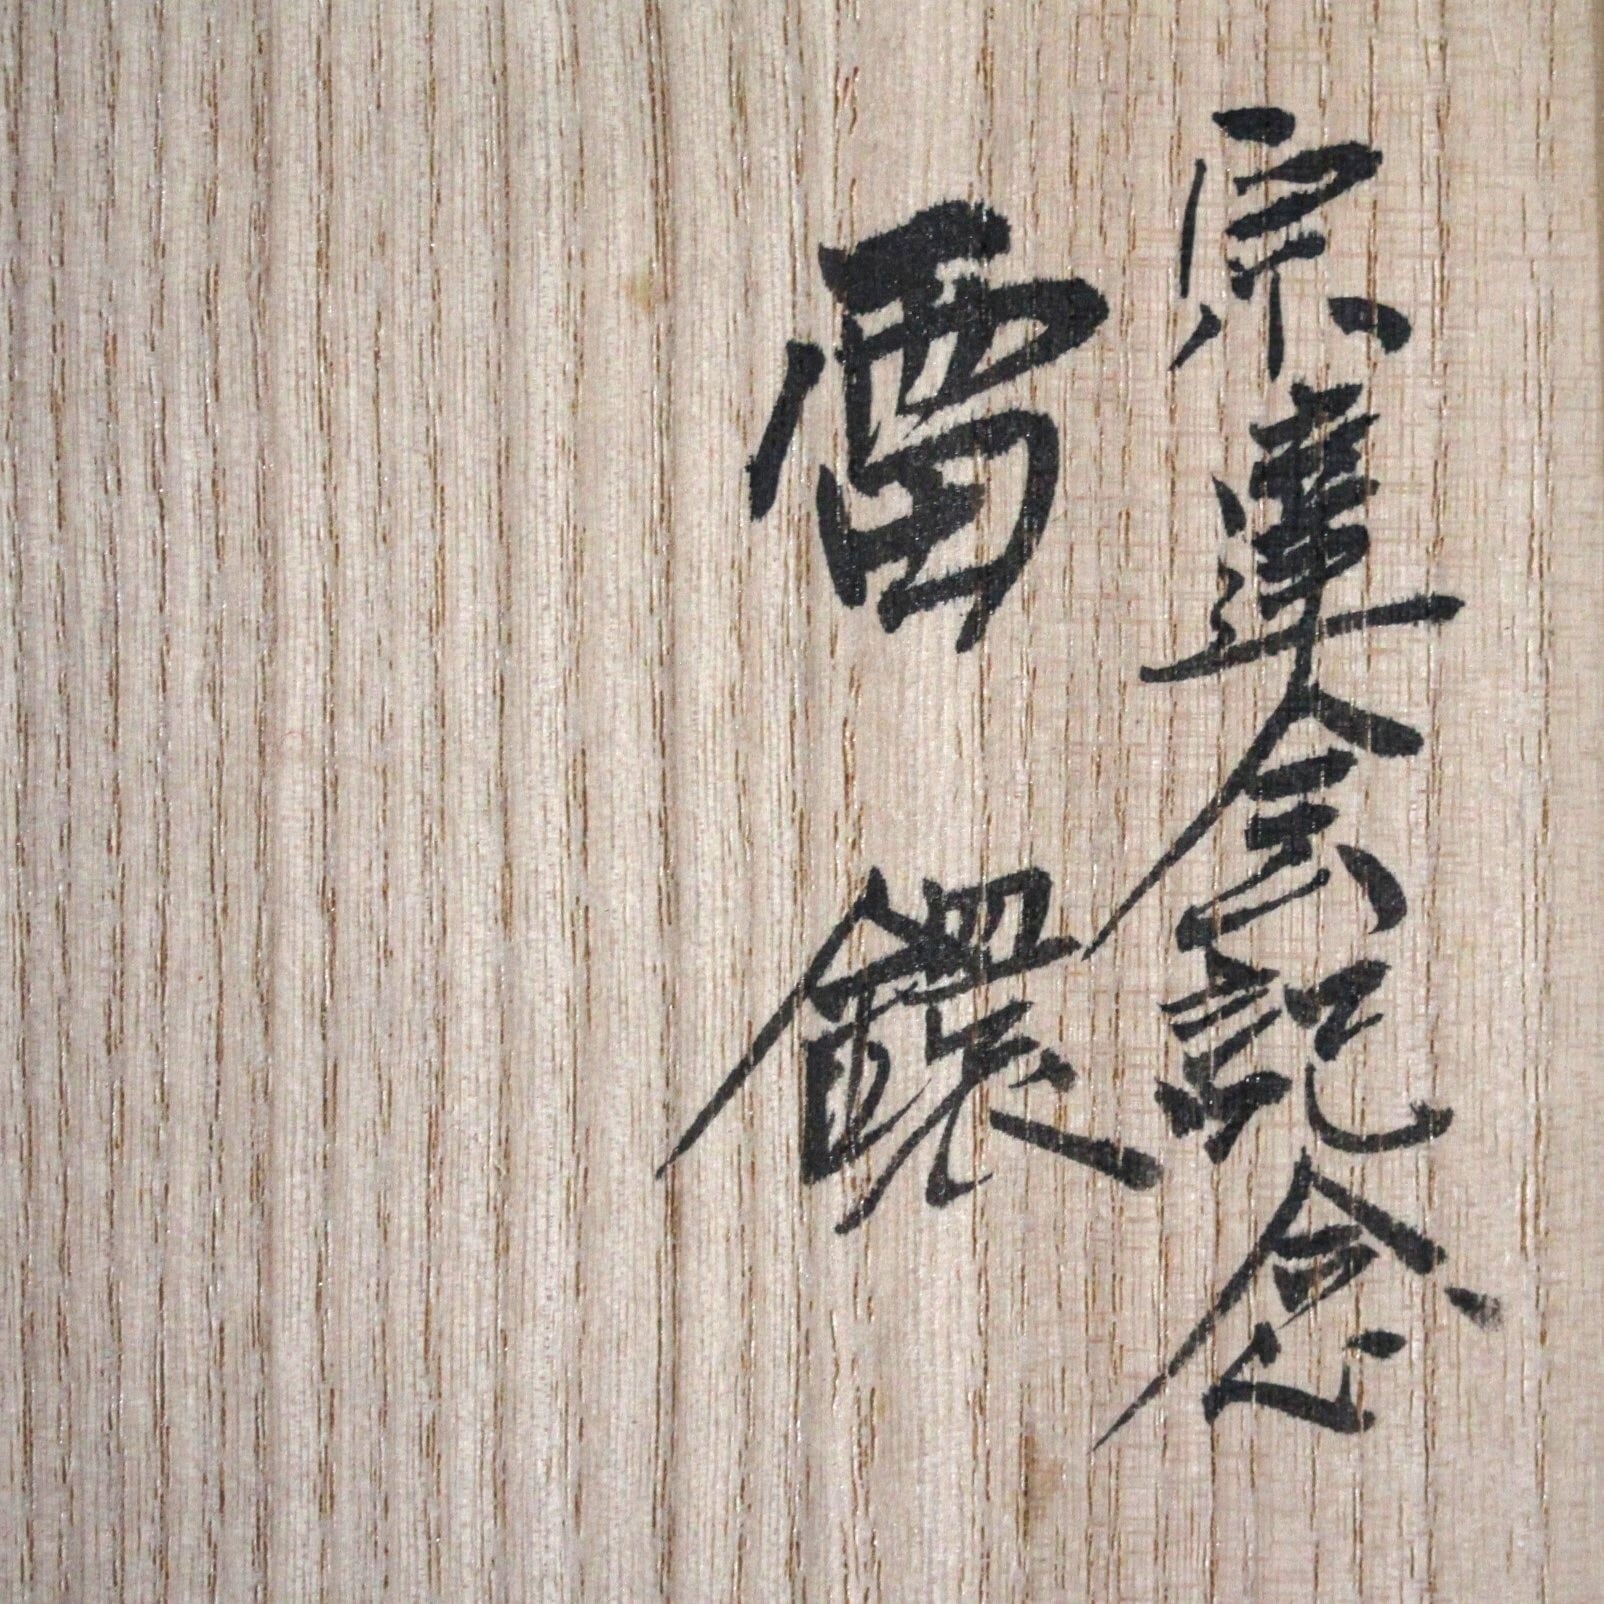 宗達会記念
雷鐶